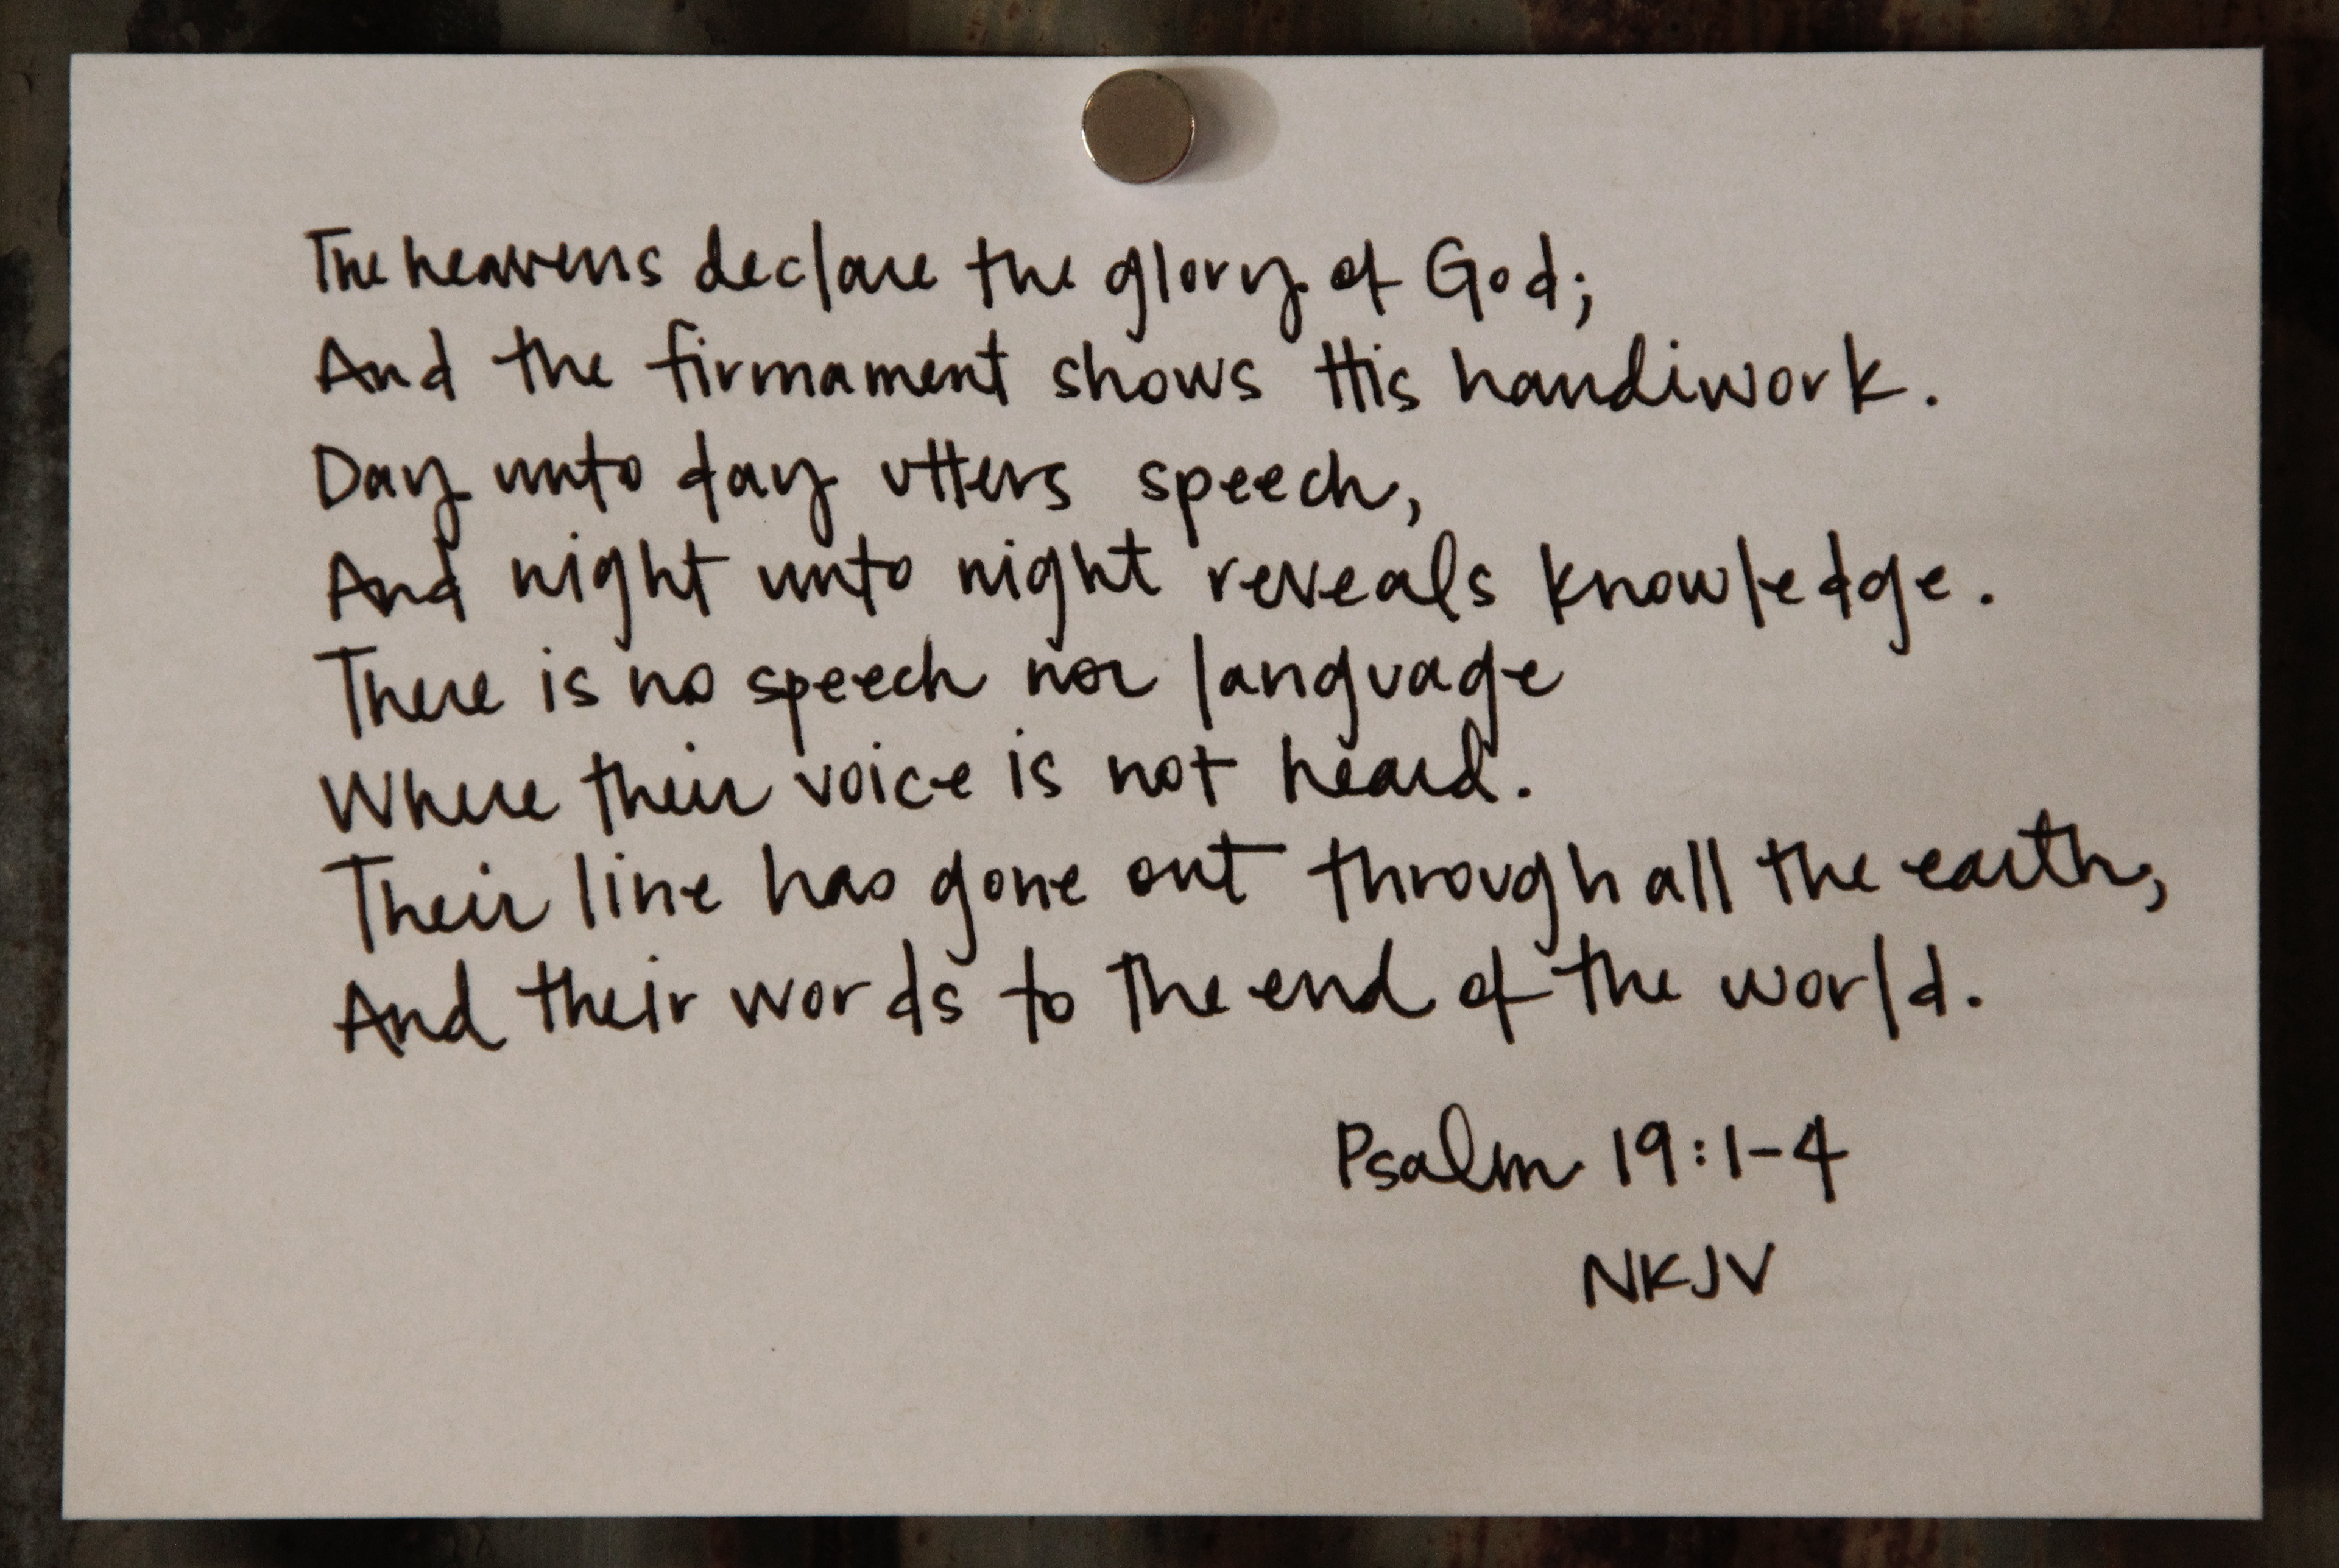 The heavens declare the glory of God;
And the firmament shows His handiwork.
Day unto day utters speech,
And night unto night reveals knowledge.
There is no speech nor language
Where their voice is not heard.
Their line has gone out through all the earth,
And their words to the end of the world.
Psalm 19:1-4
NKJV